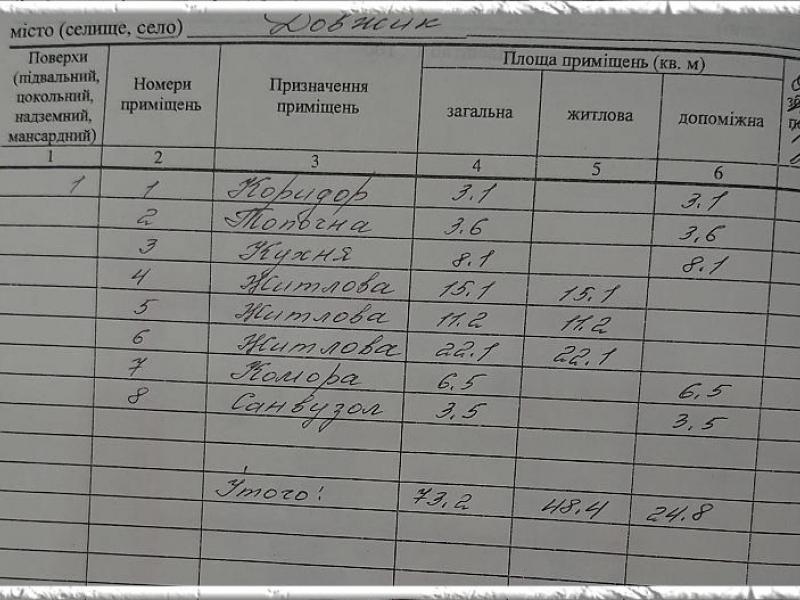 місто (селище, село) Довжик
Поверхи (підвальний, цокольний, надземний, мансардний) Номери приміщень Призначення приміщень Площа приміщень (кв. м)
загальна житлова допоміжна
1 2 3 4 5 6
1 1 Коридор 3.1 3.1
2 Топочна 3.6 3,6
3 Кухня 8.1 8.1
4 Житлова 15.1 15.1
5 Житлова 11.2 11.2
6 Житлова 22.1 22.1
7 Комора 6,5 6,5
8 Санвузол 3,5 3,5
Утого: 73.2 48.4 24.8